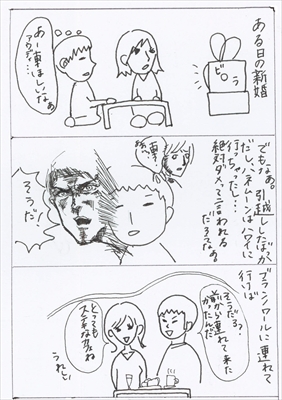 ある日の新婚
ピラ
あー車ほしいなぁ
アウディ…
でもなぁ。引越ししたばっか
だし、ハネムーンはハワイに
行っちゃったし…
絶対ダメって言われる
だろうなぁ。
そうだ!
ブランノワールに連れて
行けば
そうだろ?
前から連れて来た
かったんだ
とっても
ステキな家ね
うれしい